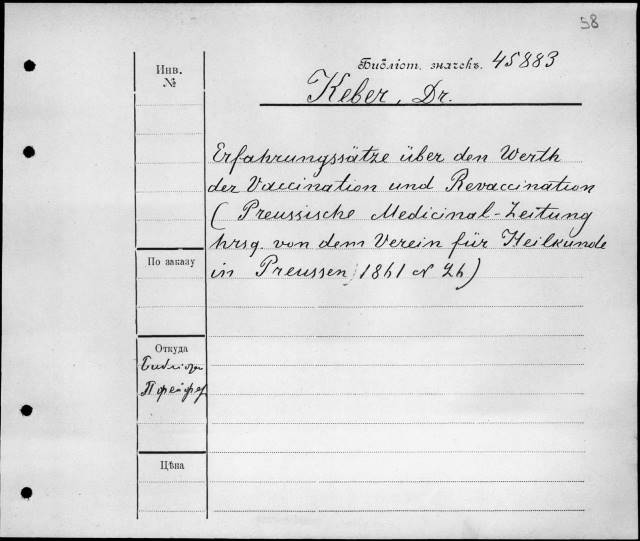 58
Инв.
№
Библіот. значекъ. 45883
Keber, Dr.
Erfahrungssätze über den Werth
der Vaccination und Revaccination
(Preussische Medicinal-Zeitung
hrsg. von dem Verein für Heilkunde
По заказу
in Preussen, 1861 N 26)
Откуда
Пфейфер
Цѣна